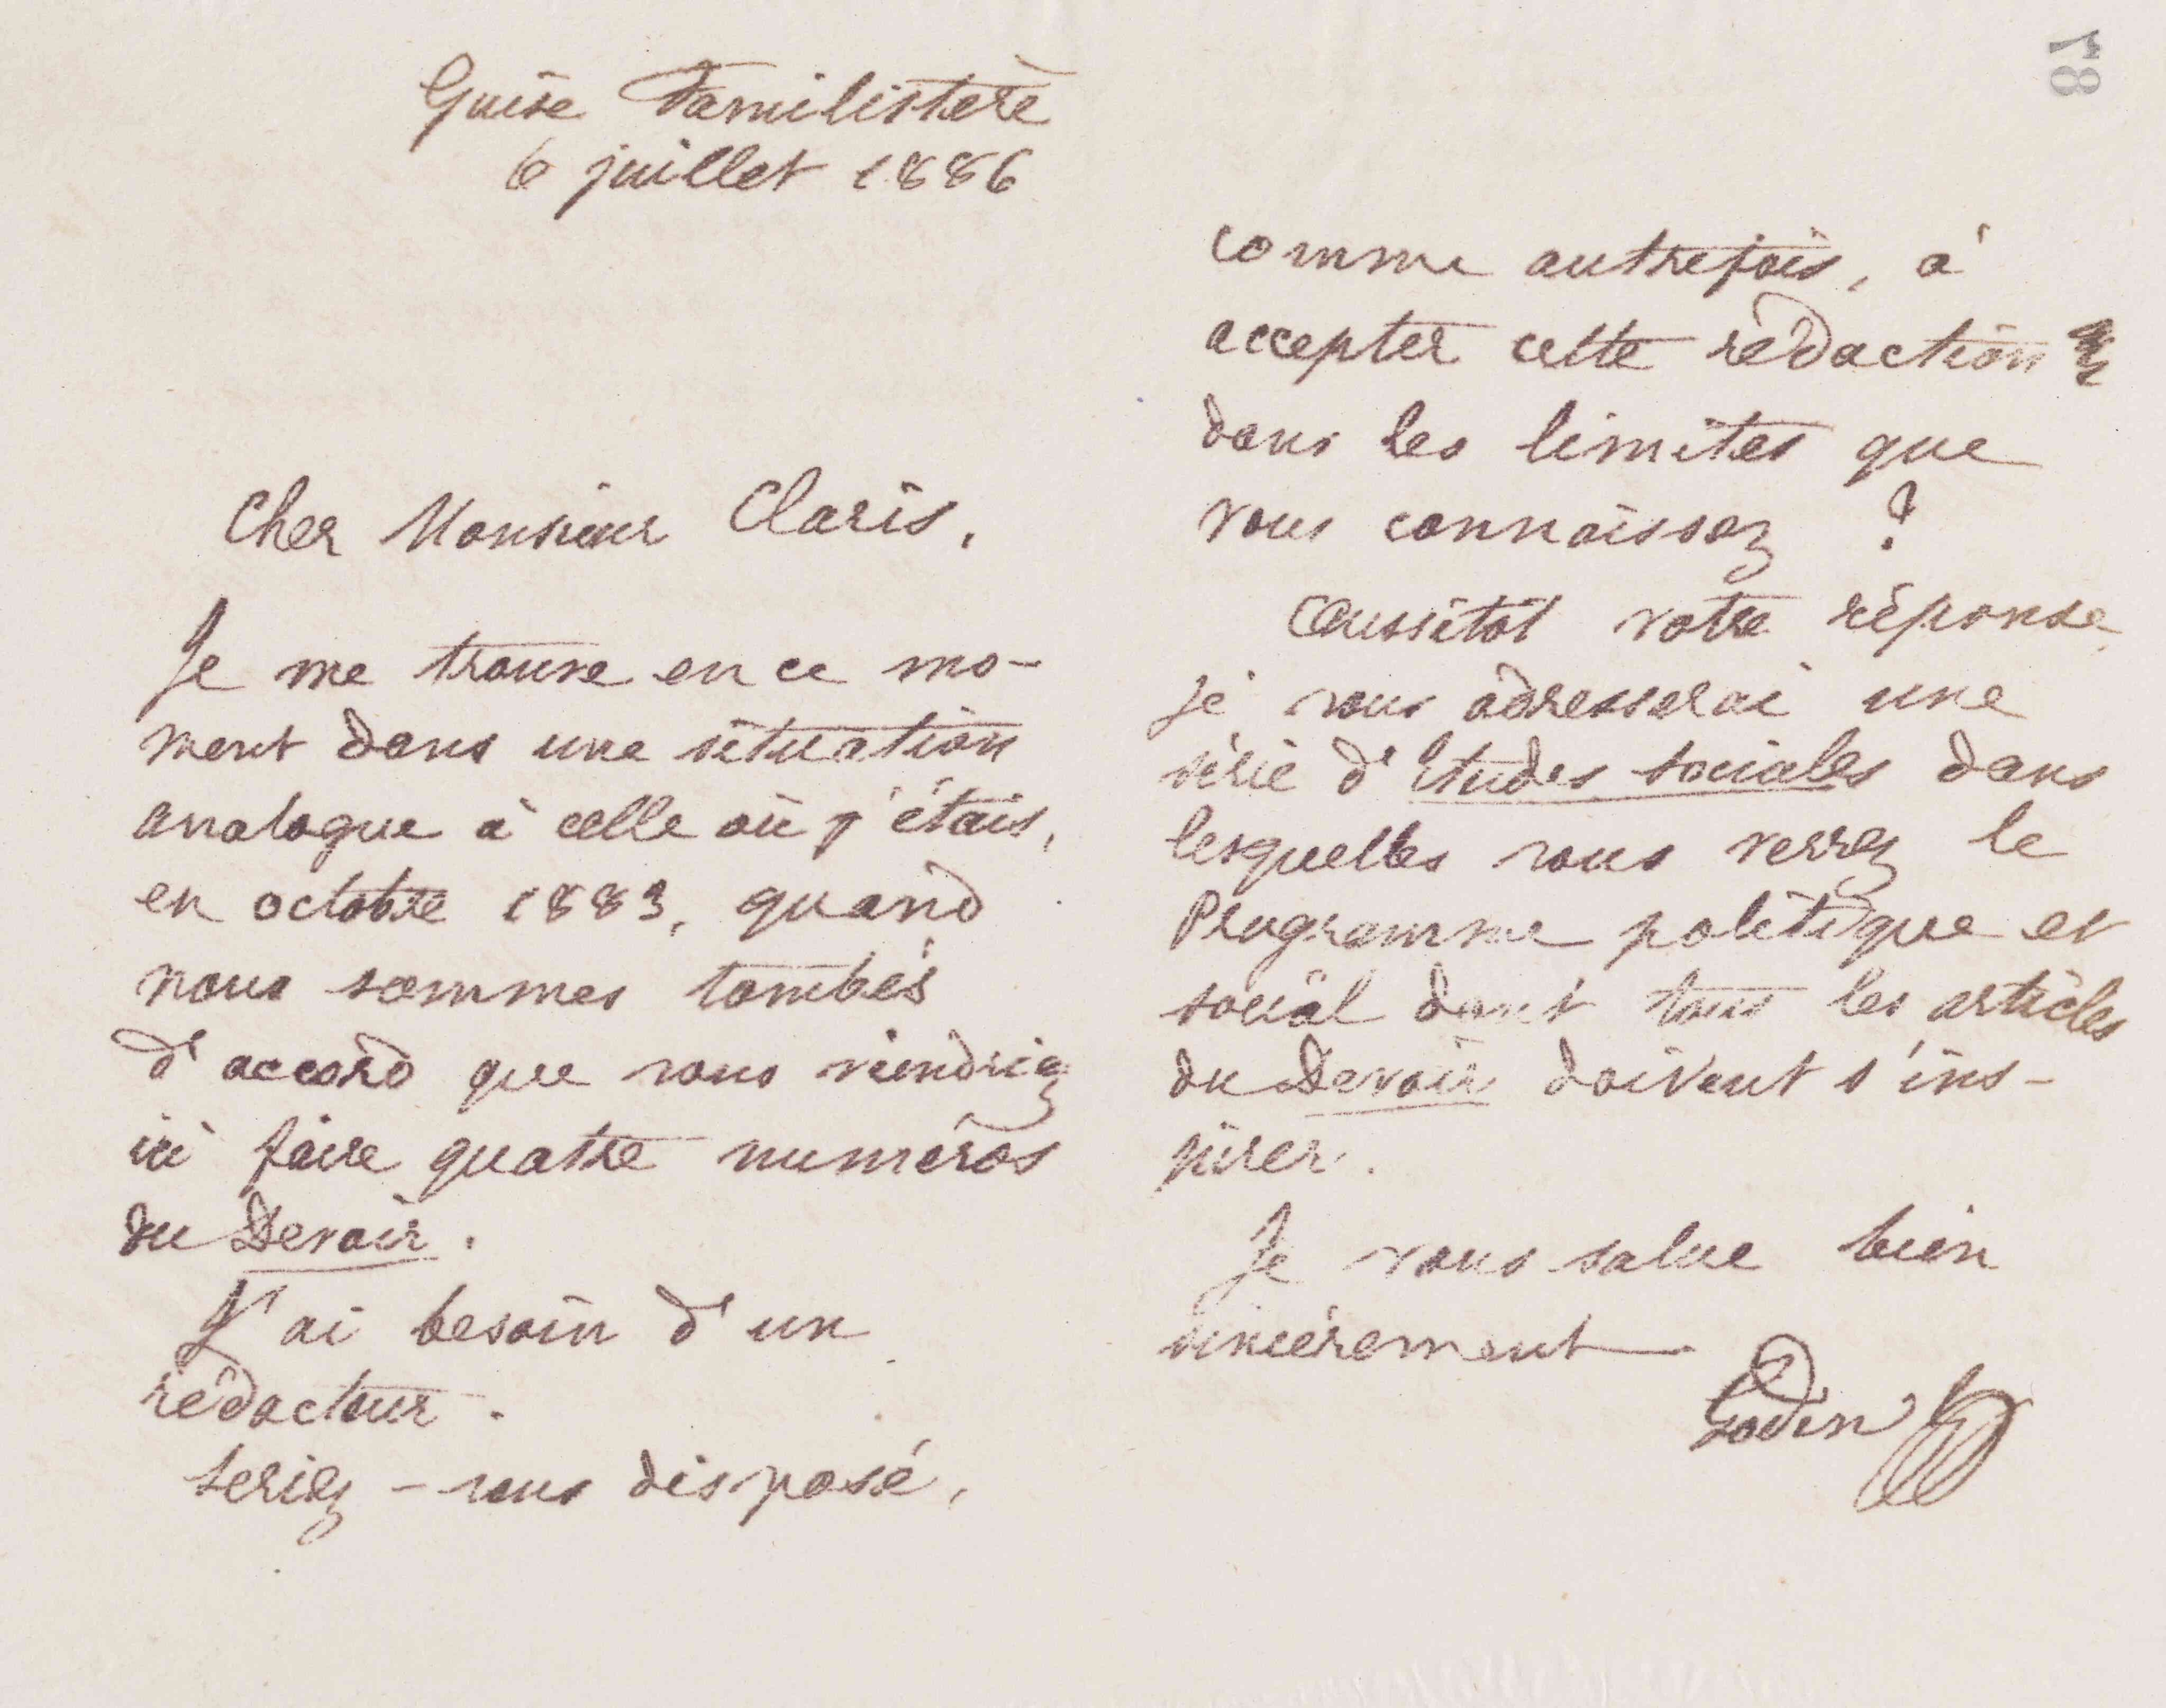 78
Guise Familistère
6 juillet 1886
Cher Monsieur Claris,
Je me trouve en ce mo-
ment dans une situation
analogue à celle où j'étais,
en octobre 1883, quand
nous sommes tombés
d'accord que vous viendriez
ici faire quatre numéros
du Devoir.
J'ai besoin d'un
rédacteur.
Seriez-vous disposé,
comme autrefois, à
accepter cette rédaction
dans les limites que
vous connaissez ?
Aussitôt votre réponse,
je vous adresserai une
série d'Etudes sociales dans
lesquelles vous verrez le
Programme politique et
social dont tous les articles
du Devoir doivent s'ins-
pirer.
Je vous salue bien
sincèrement
Godin